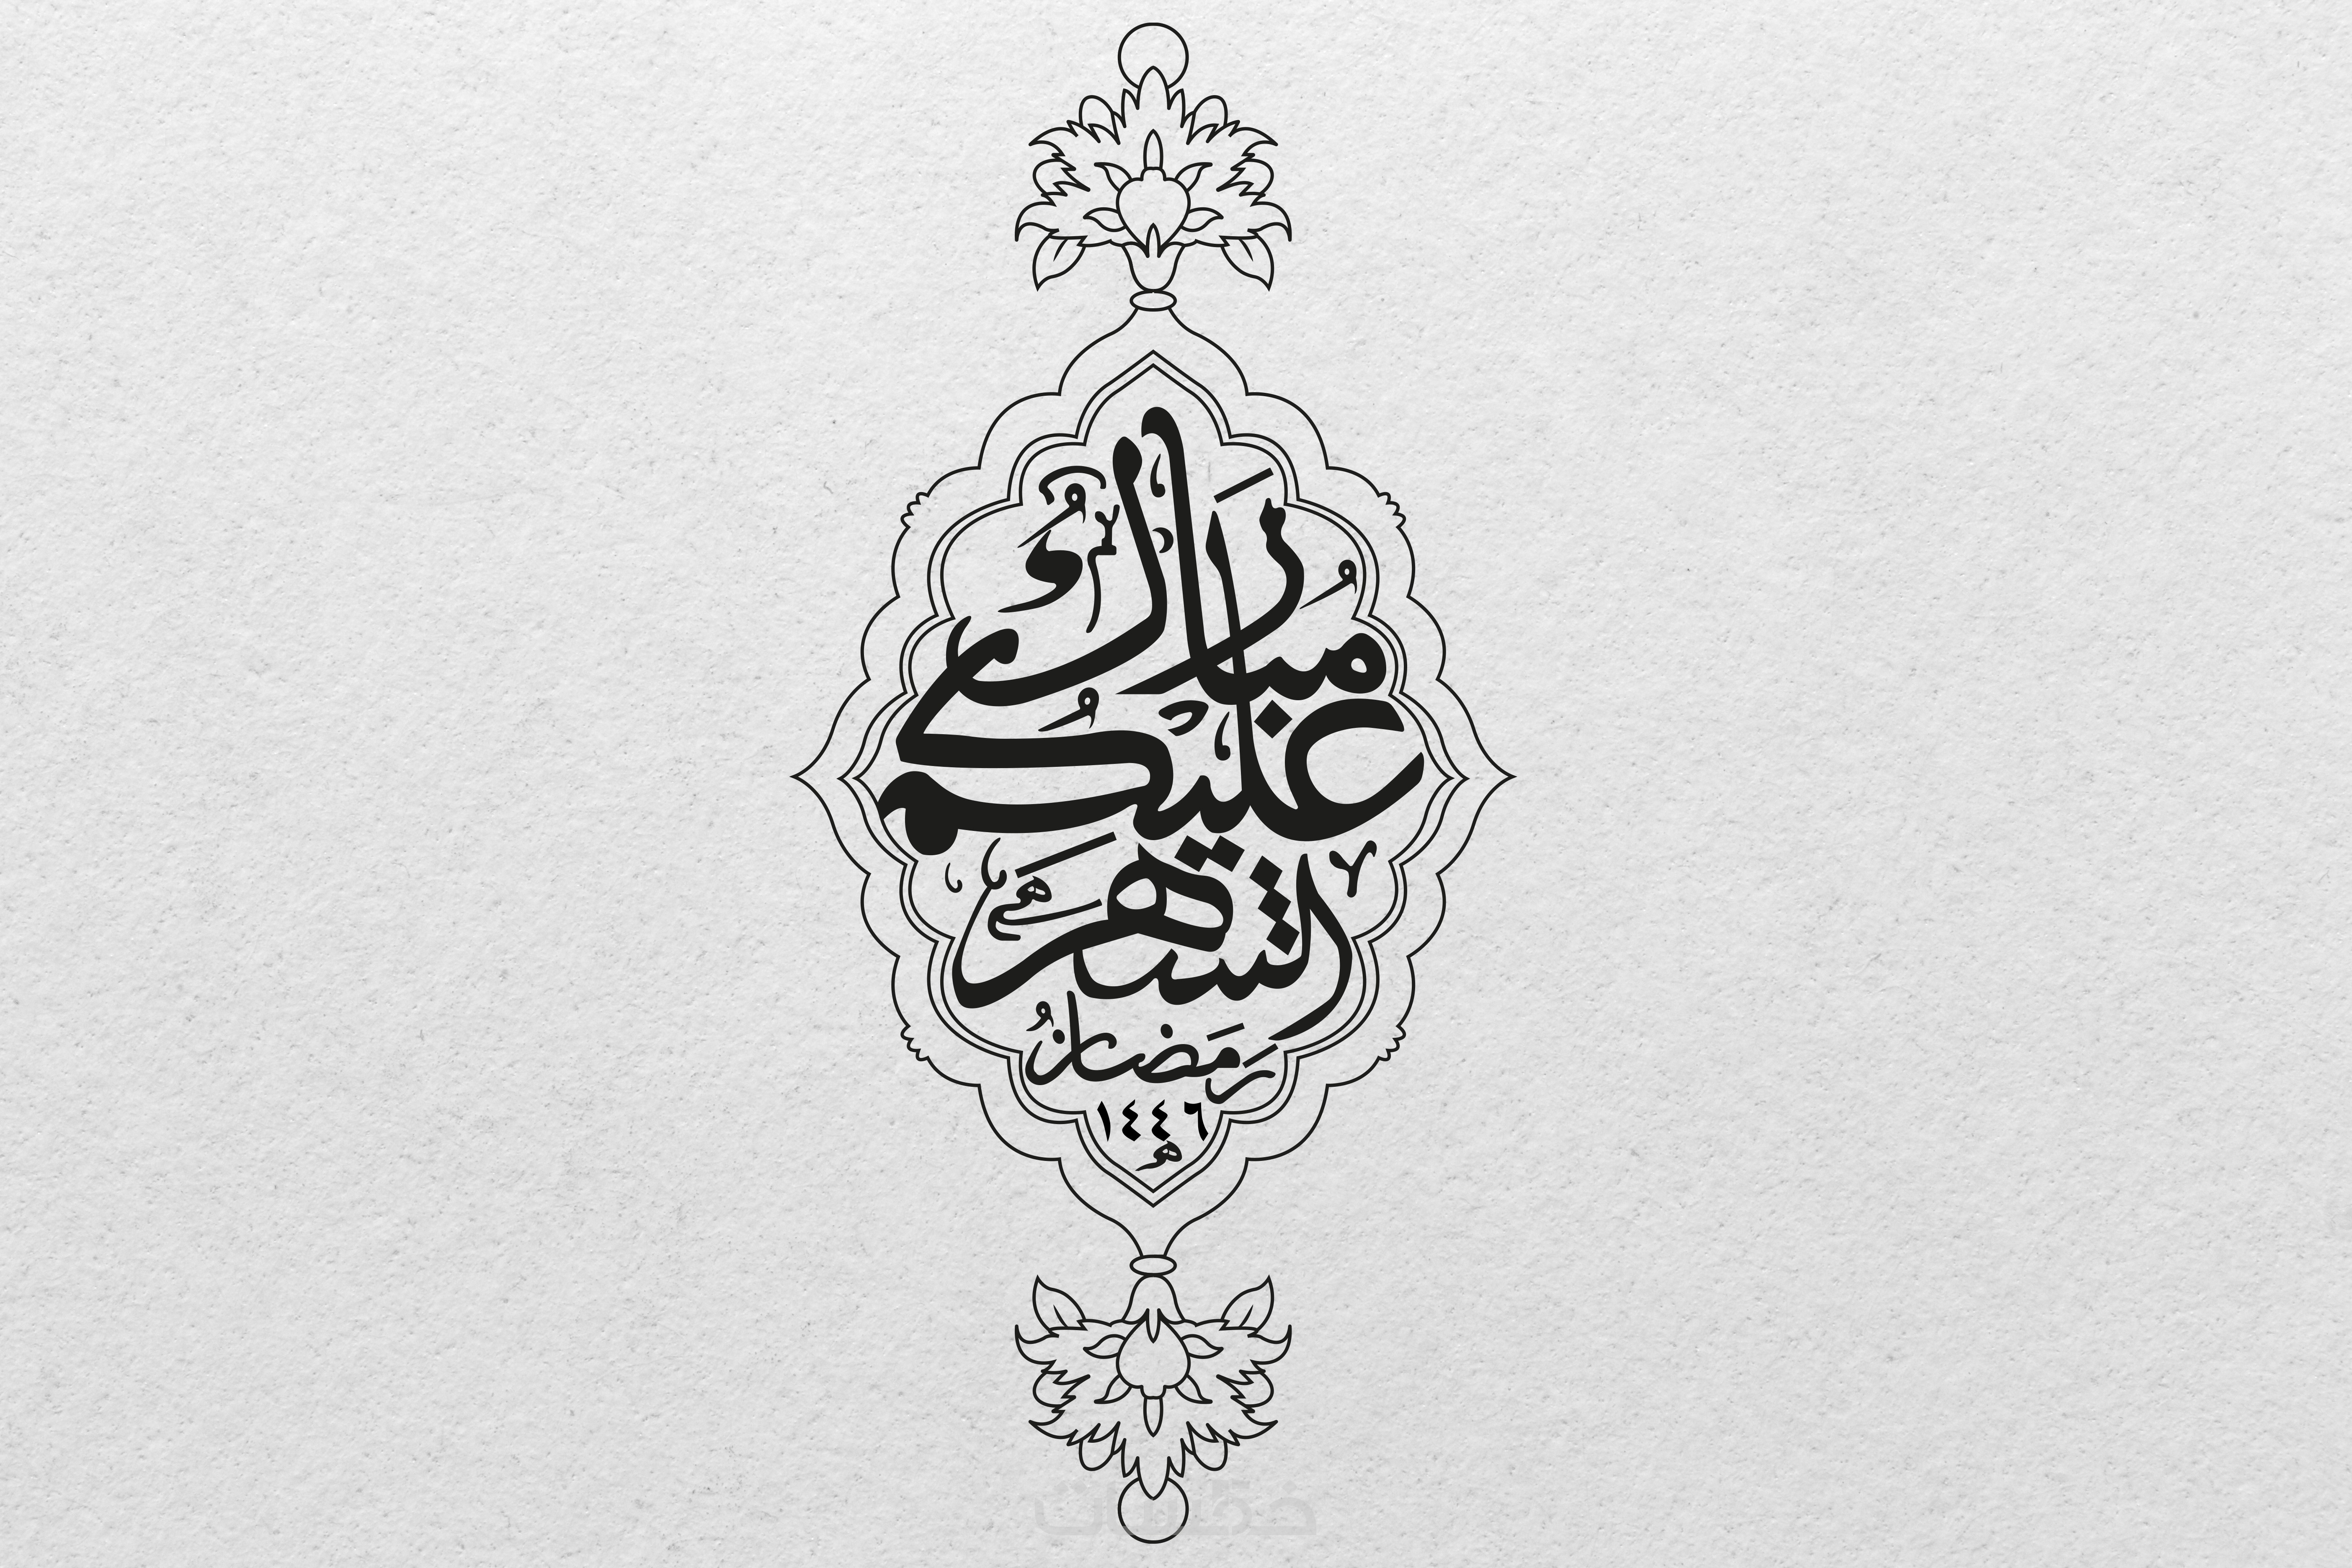 مُبَارَكٌ
عَلَيْكُم
الشَّهْر
رَمَضَان
١٤٤٦
هـ
خمسات